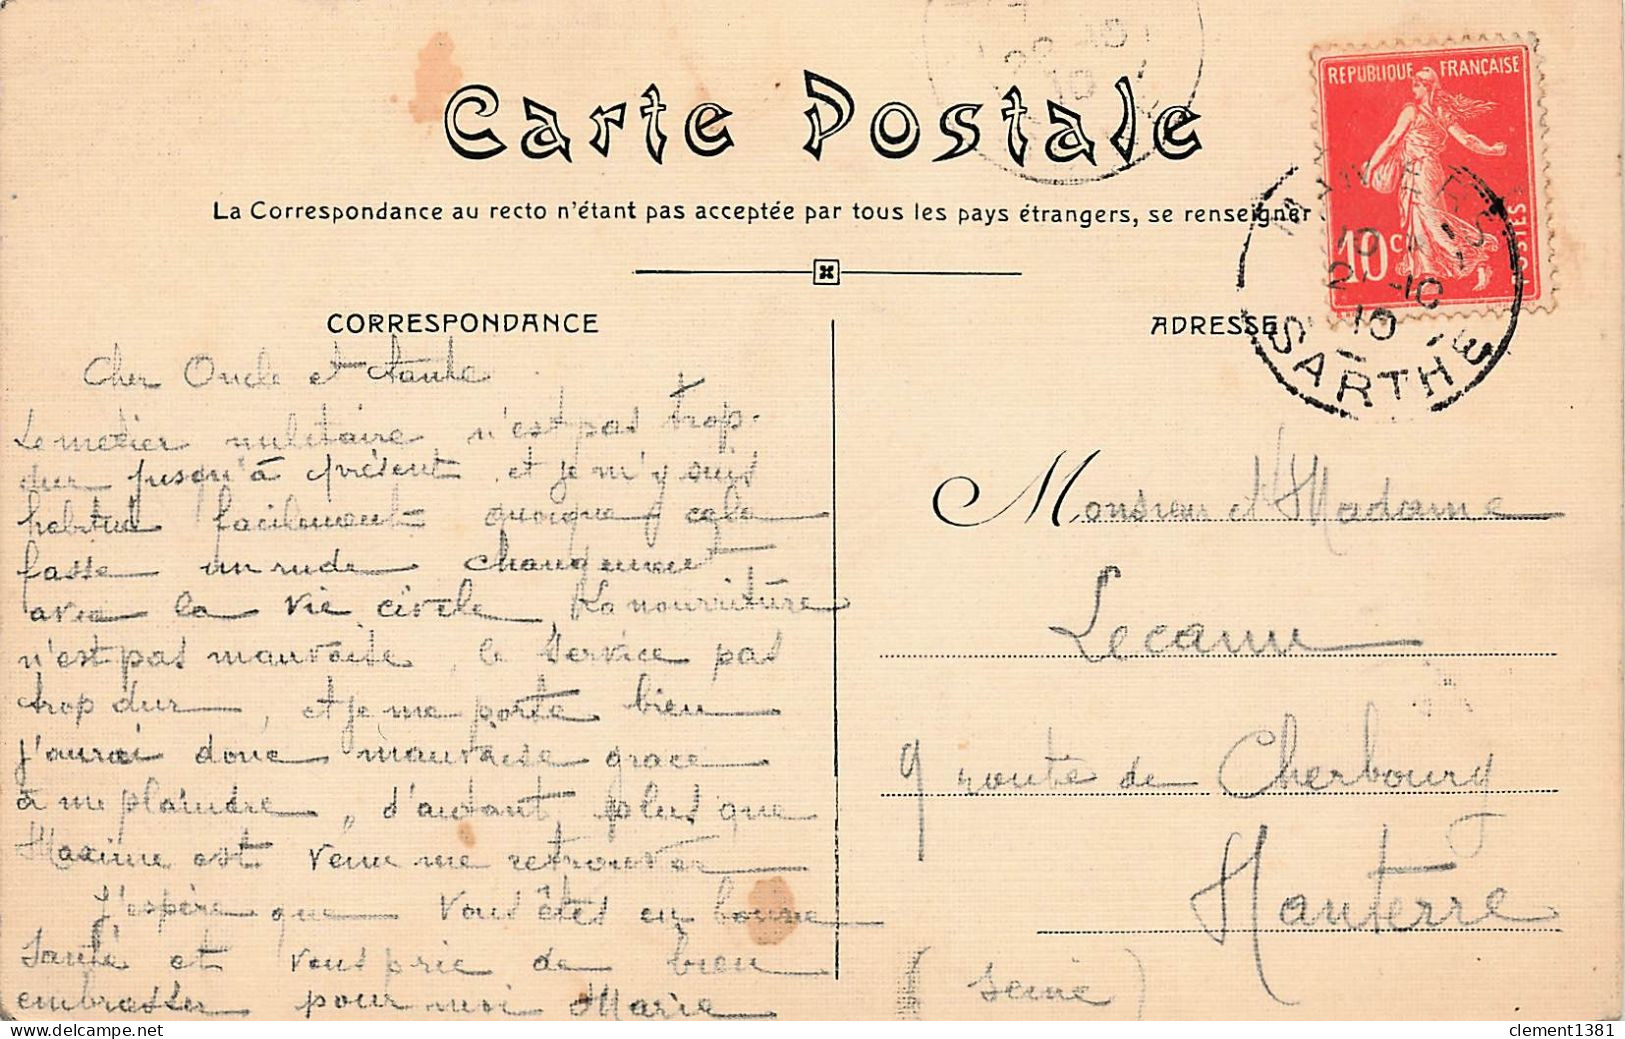 Carte Postale
REPUBLIQUE FRANÇAISE
10 c
POSTES
La Correspondance au recto n'étant pas acceptée par tous les pays étrangers, se renseigner
CORRESPONDANCE
Cher Oncle et tante
Le metier militaire n'est pas trop
dur jusqu'à présent et je m'y suis
habitué facilement quoique cela
fasse un rude changement
avec la vie civile, La nourriture
n'est pas mauvaise, le service pas
trop dur, et je me porte bien
j'aurai donc mauvaise grace
à me plaindre, d'autant plus que
Maxime est venu me retrouver
J'espère que vous êtes en bonne
santé et vous prie de bien
embrasser pour moi Marie
ADRESSE
SARTHE
Monsieur et Madame
Lecanu
9 route de Cherbourg
Nanterre
(Seine)
clement1381